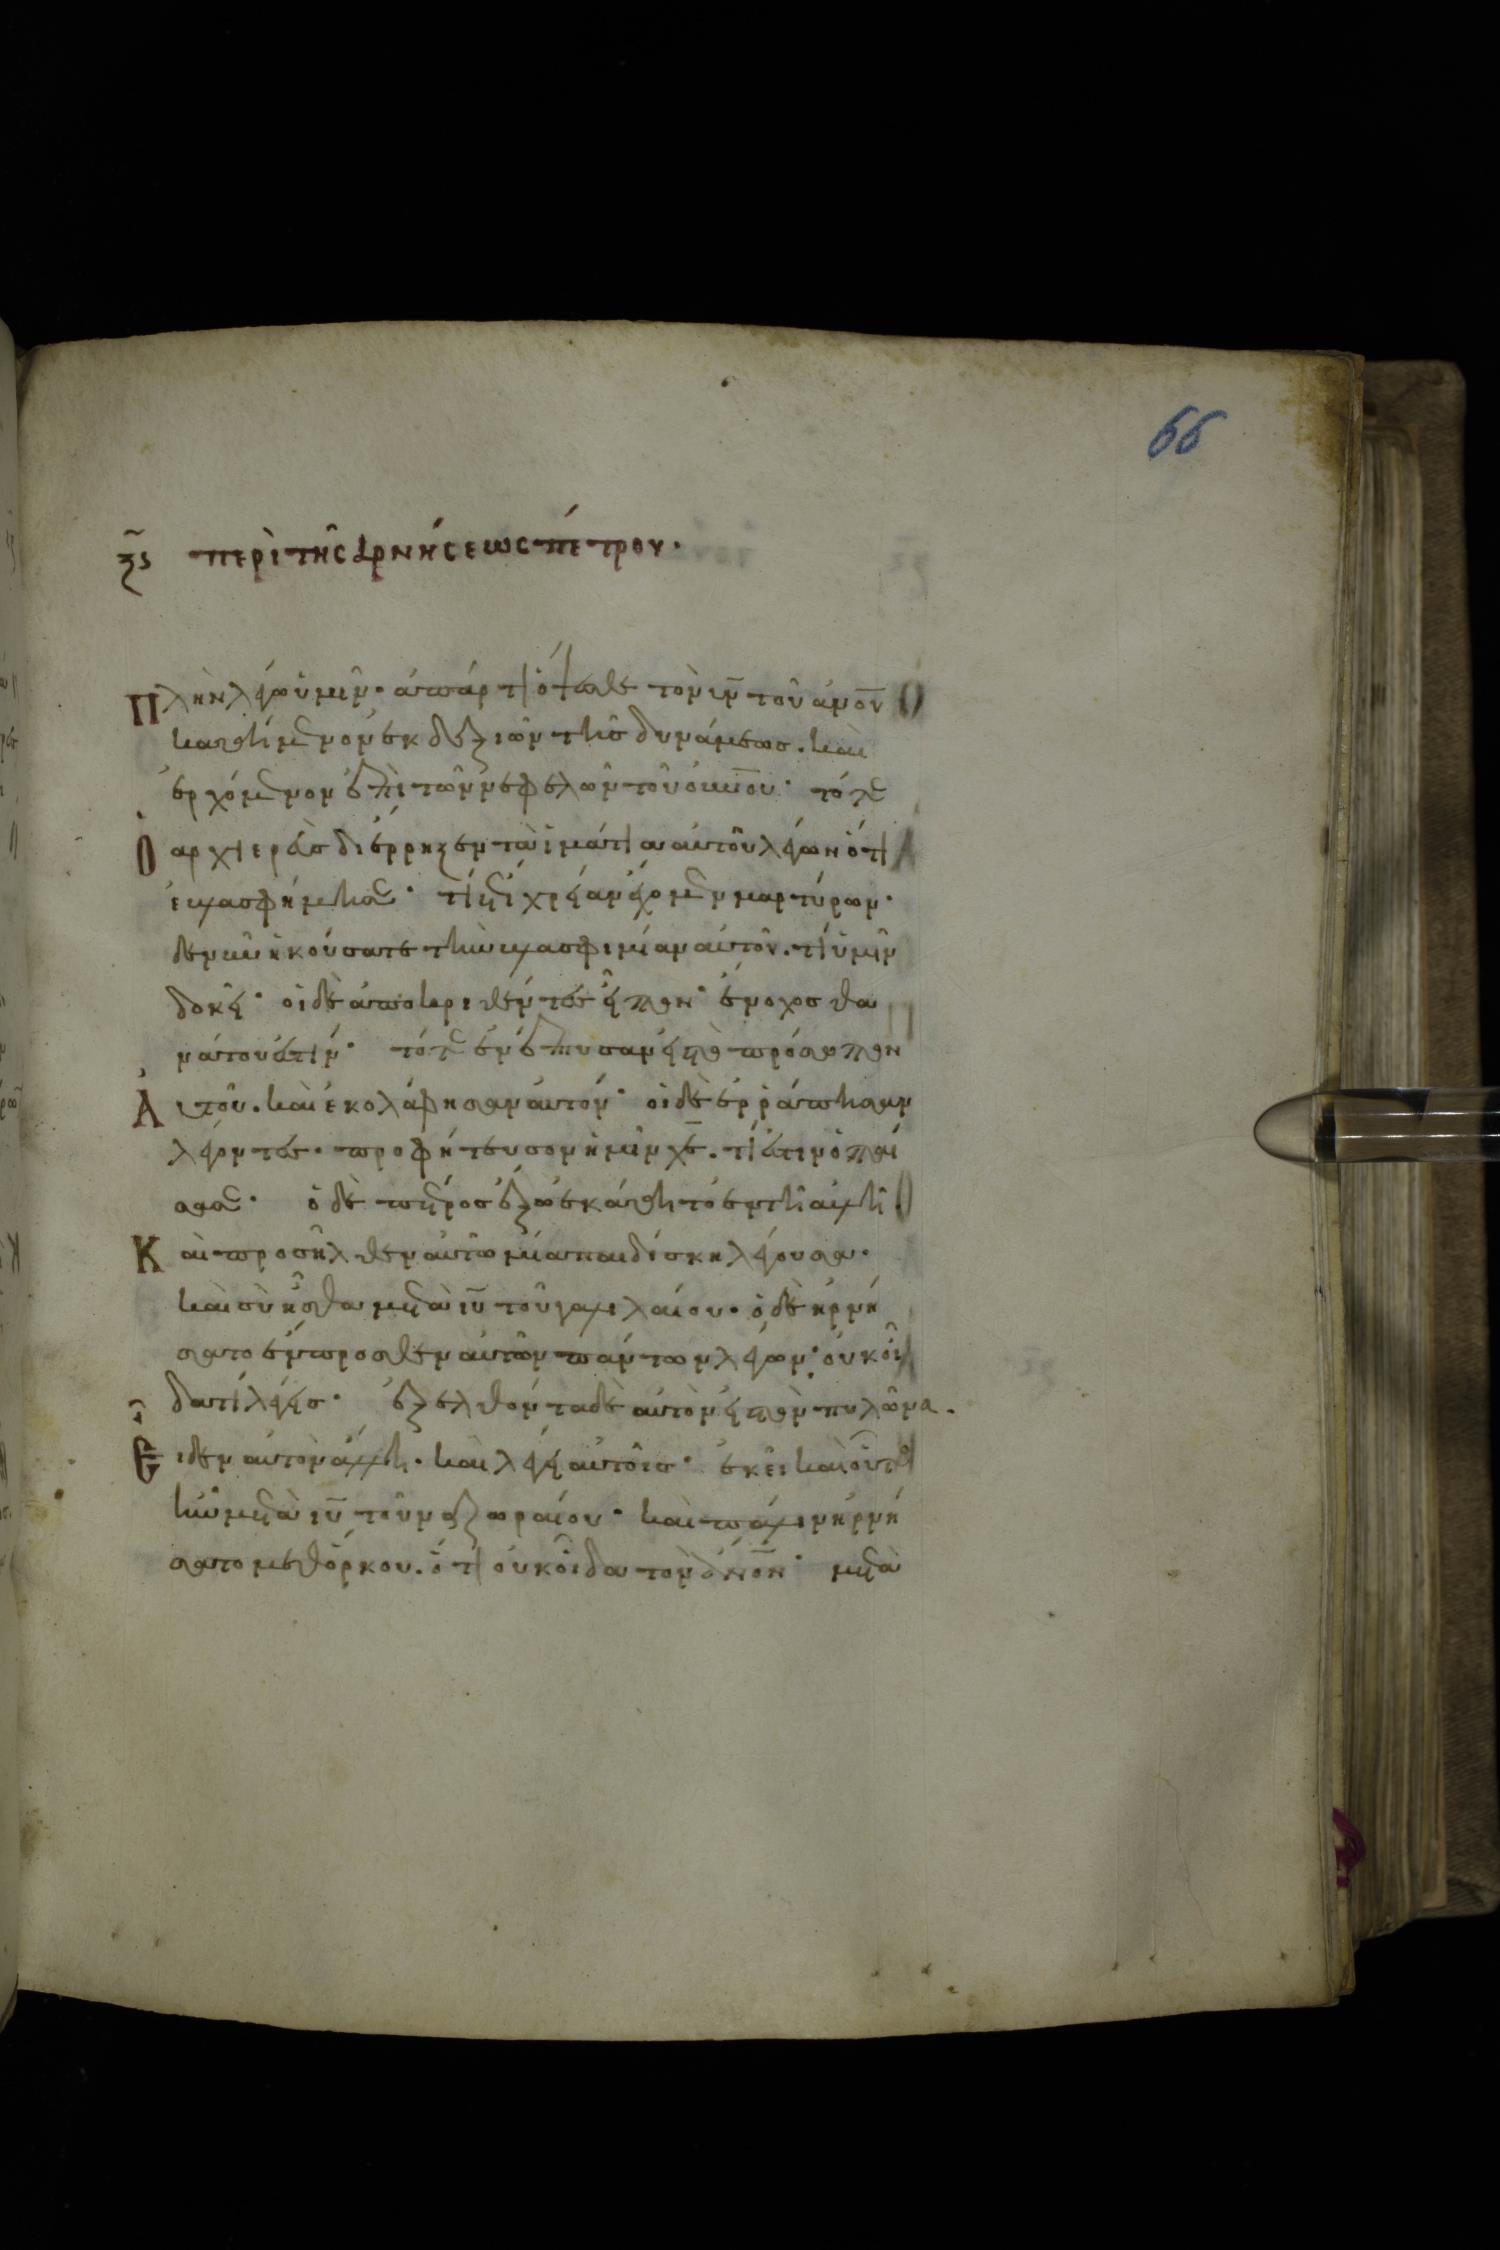 66
ξϛ περὶ τῆς ἀρνήσεως πέτρου.
Πλὴν λέγω ὑμῖν· ἀπάρτι ὄψεσθε τὸν υν τοῦ ανου
καθήμενον ἐκ δεξιῶν τῆς δυνάμεως. καὶ
ἐρχόμενον ἐπὶ τῶν νεφελῶν τοῦ ουνου· τότε
Ὁ ἀρχιερεὺς διέρρηξεν τὰ ἱμάτια αὐτοῦ λέγων ὅτι
ἐβλασφήμησε· τί ἔτι χρείαν ἔχομεν μαρτύρων·
δε νῦν ἠκούσατε τὴν βλασφιμίαν αὐτοῦ. τί ὑμῖν
δοκεῖ· οἱ δὲ ἀποκριθέντες εἶπον· ἔνοχος θα
νάτου ἐστίν· τότε ἐνέπτυσαν εἰς τὸ πρόσωπον
Αὐτοῦ. καὶ ἐκολάφησαν αὐτόν· οἱ δὲ ἐρράπησαν
λέγοντες. προφήτευσον ἡμῖν χε. τίς ἐστιν ὁ παί
σας σε· ὁ δὲ πέτρος ἔξω ἐκάθητο ἐν τῆ αὐλῆ.
Καὶ προσῆλθεν αὐτῶ μία παιδίσκη λέγουσα·
καὶ σὺ ἦσθα μετὰ ιυ τοῦ γαλιλαίου. ὁ δὲ ἠρνή
σατο ἔμπροσθεν αὐτῶν πάντων λέγων· οὐκ οἶ
δα τί λέγεις· ἐξελθόντα δὲ αὐτὸν εἰς τὸν πυλῶνα.
Εἶδεν αὐτὸν ἄλλη. καὶ λέγει αὐτοῖς· ἐκεῖ καὶ οὗτος
ἦν μετὰ ιυ τοῦ ναζωραίου· καὶ πάλιν ἠρνή
σατο μεθόρκου. ὅτι οὐκ οἶδα τὸν ανον· μετὰ